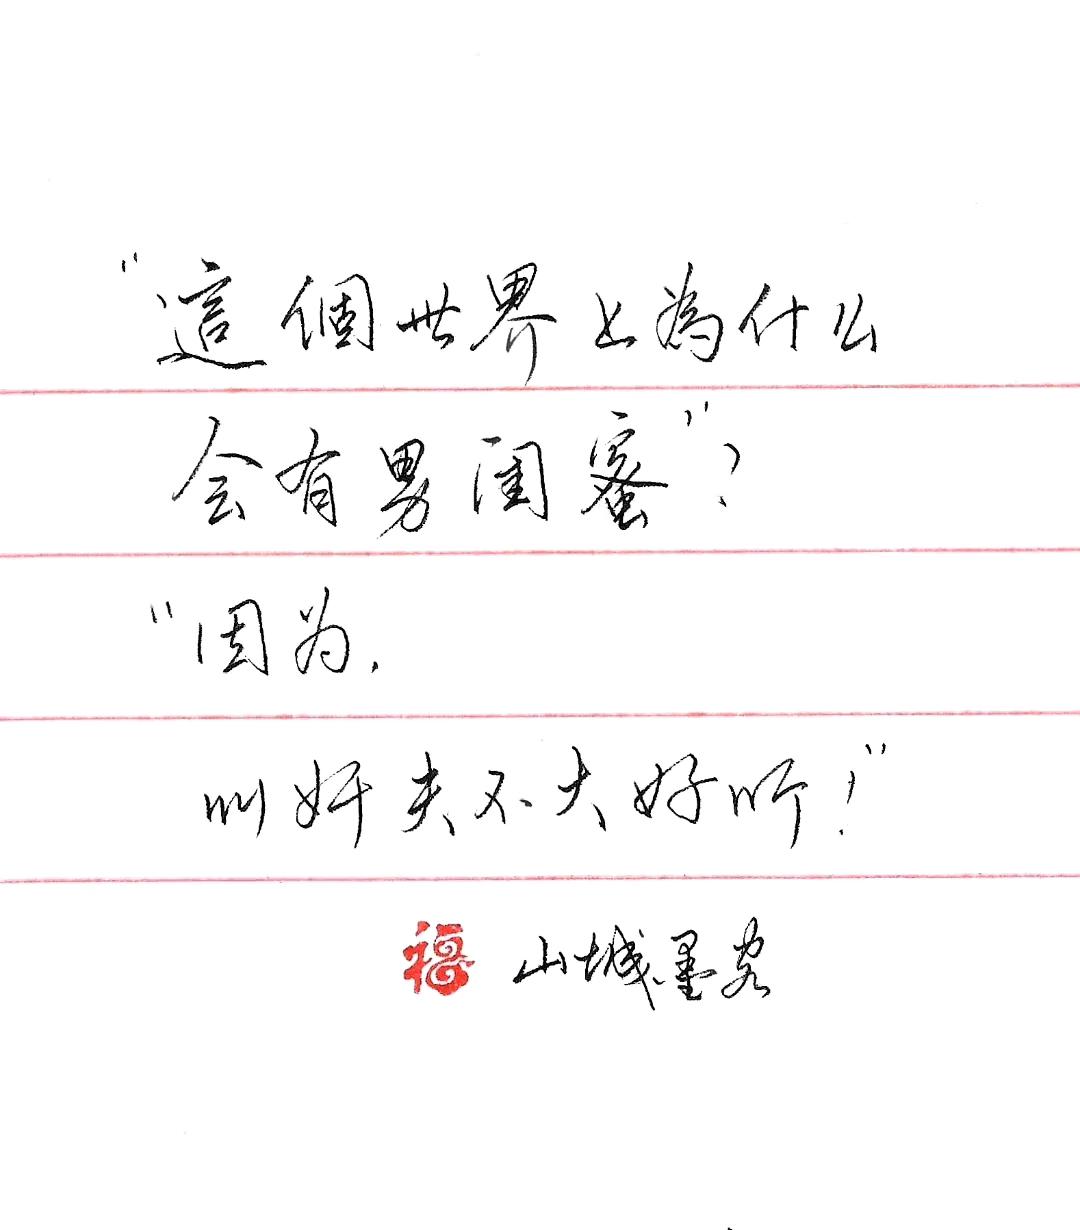 “這個世界上為什么
会有男闺蜜”？
“因为，
叫奸夫不大好听！”
福 山城墨客